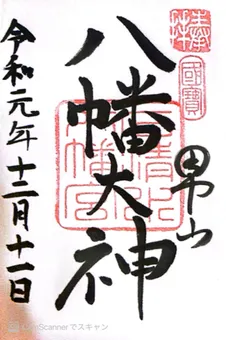 奉拝
國寶
男山
八幡大神
石清水八幡宮
令和元年十二月十一日
CamScannerでスキャン